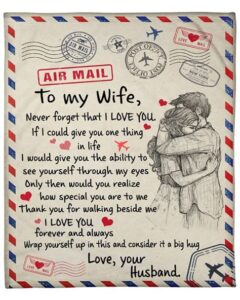 AIR MAIL
To my Wife,
Never forget that I LOVE YOU
If I could give you one thing
in life
I would give you the ability to
see yourself through my eyes
Only then would you realize
how special you are to me
Thank you for walking beside me
I LOVE YOU
forever and always
Wrap yourself up in this and consider it a big hug
Love, your
Husband.